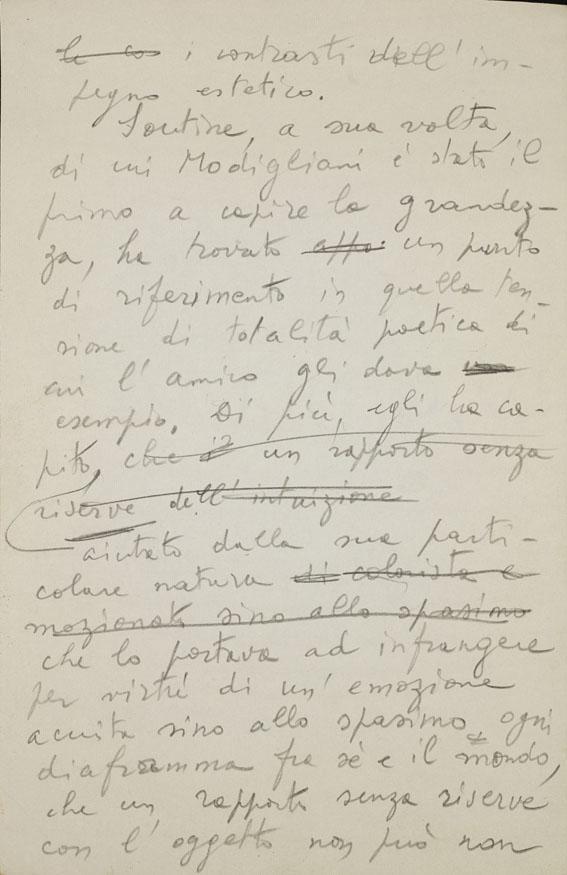 le cos i contrasti dell'im-
pegno estetico.
Soutine, a sua volta,
di cui Modigliani è stato il
primo a capire la grandez-
za, ha trovato appo. un punto
di riferimento in quella ten-
sione di totalità poetica di
cui l'amico gli dava
esempio. Di più, egli ha ca-
pito, che è un rapporto senza
riserve dell'intuizione
aiutato dalla sua parti-
colare natura di colorista e
mozionato sino allo spasimo
che lo portava ad infrangere
per virtù di un'emozione
acuita sino allo spasimo ogni
diaframma fra sé e il mondo,
che un rapporto senza riserve
con l'oggetto non può non